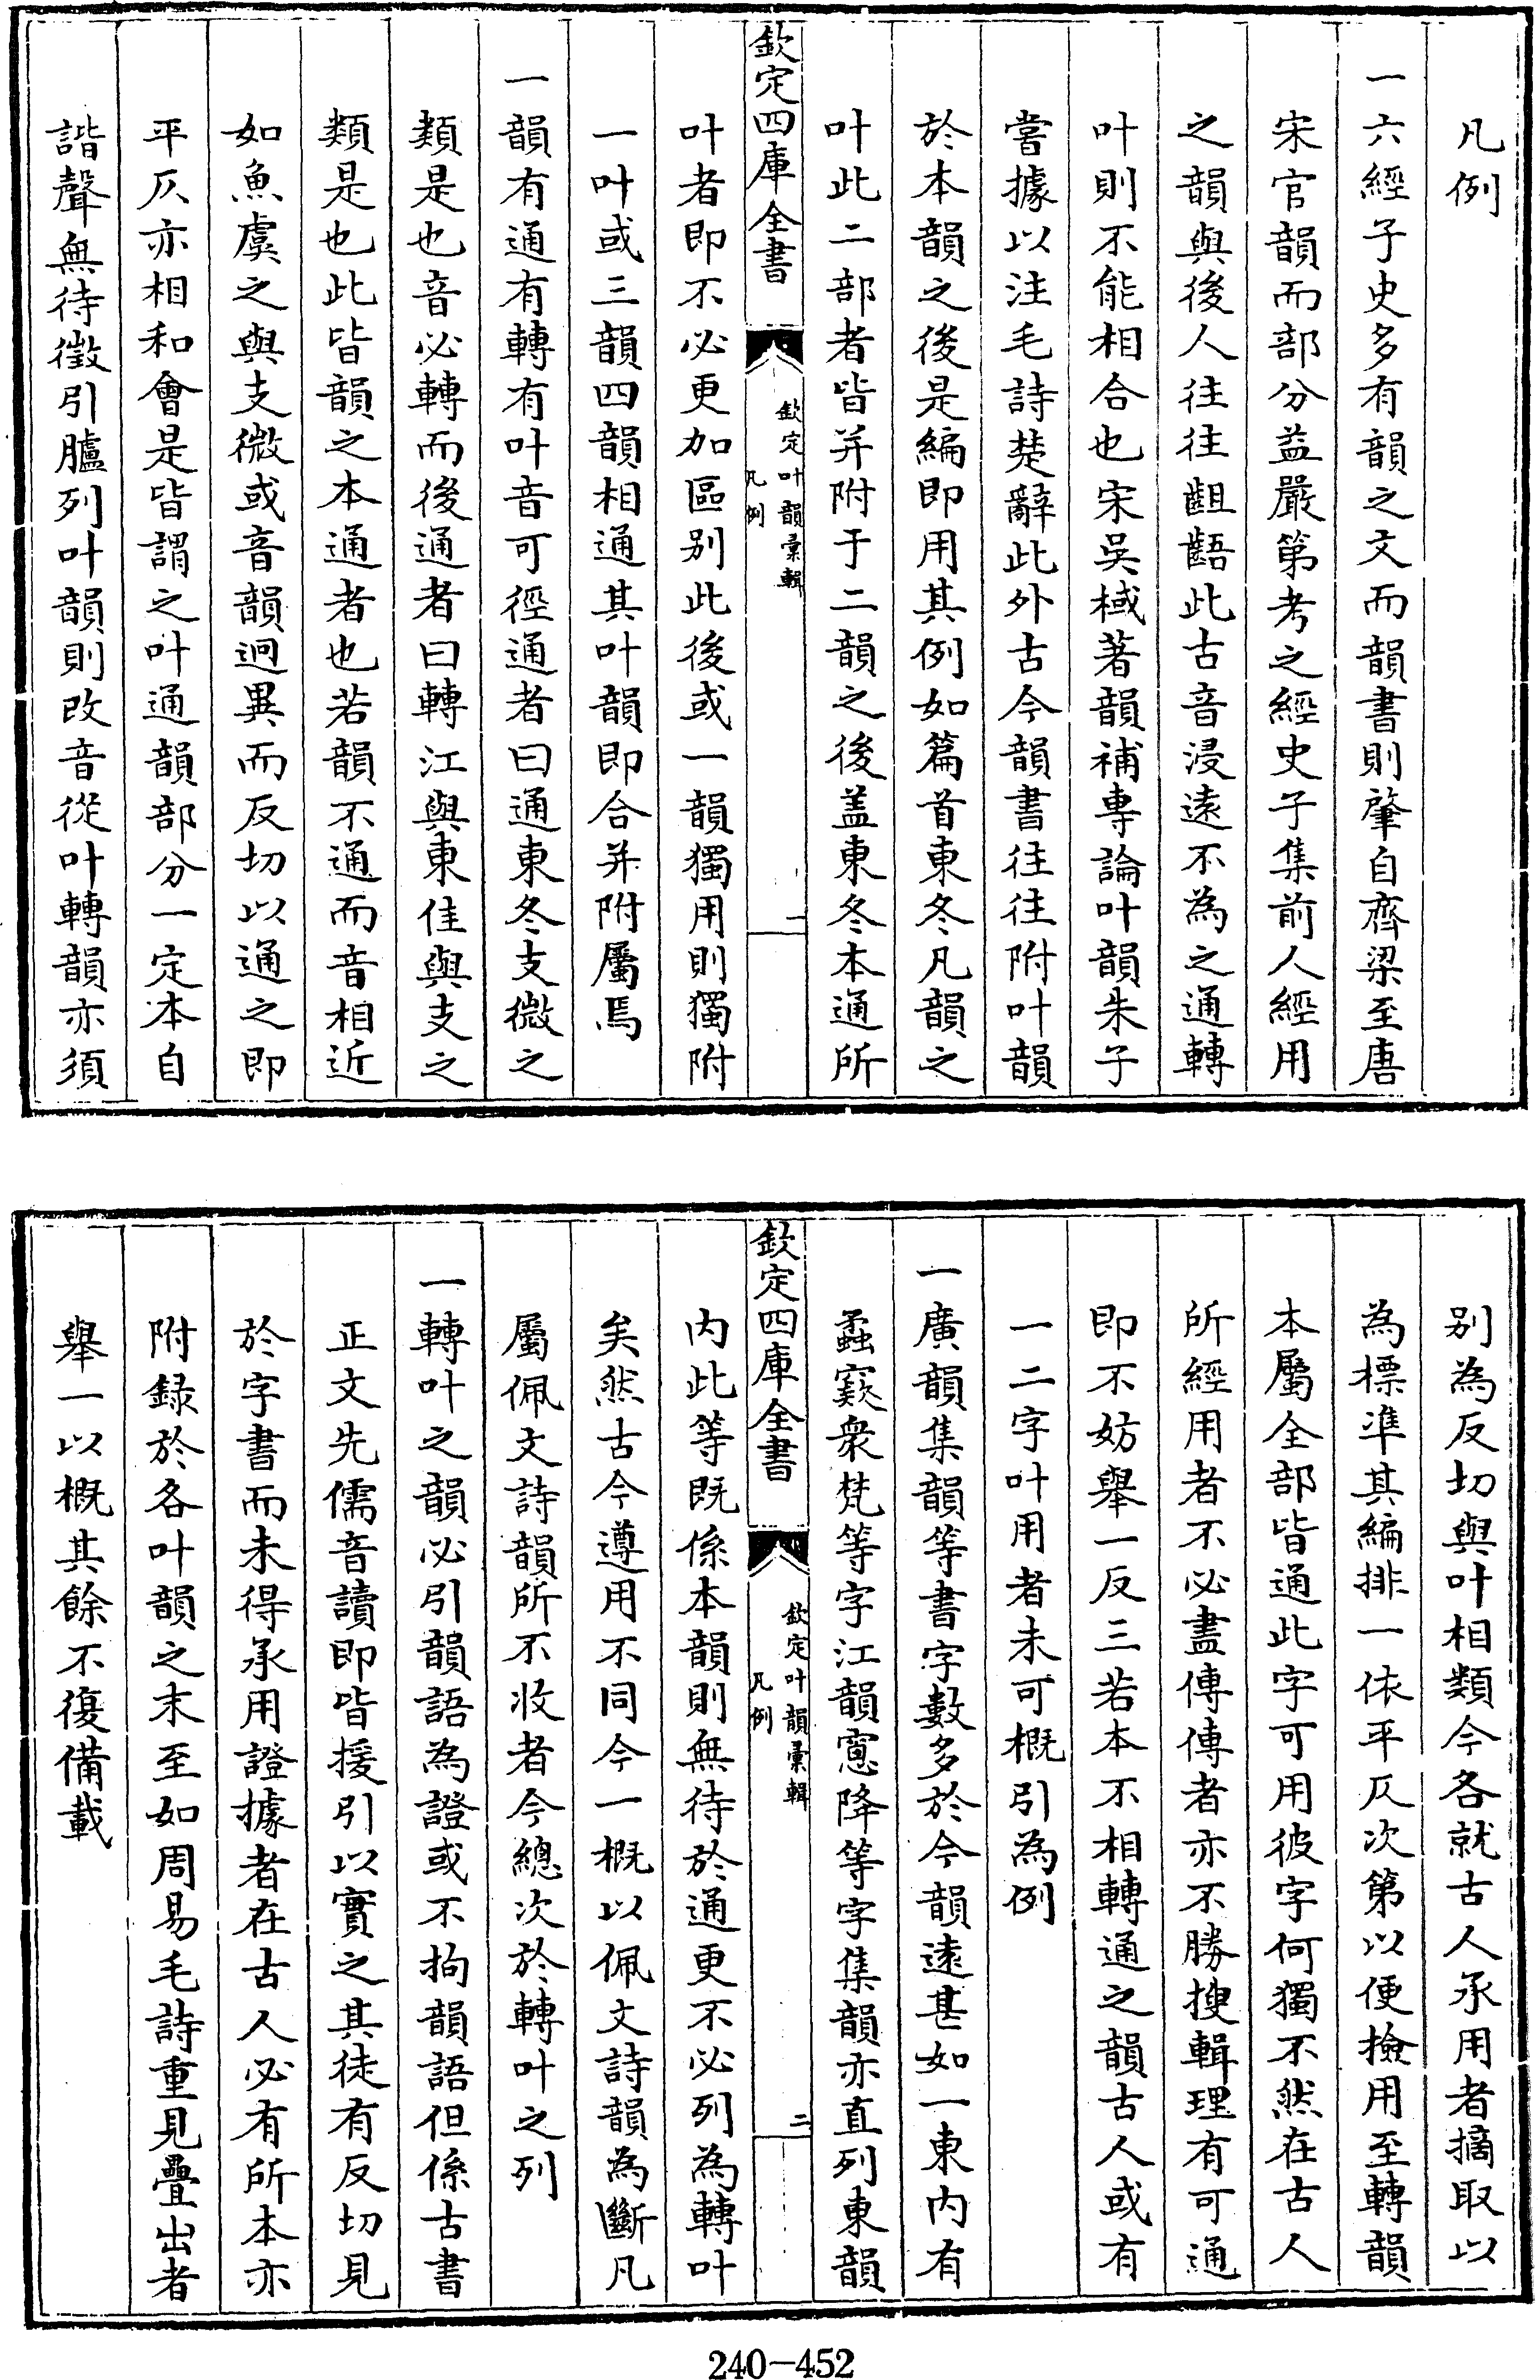 凡例
一六經子史多有韻之文而韻書則肇自齊梁至唐
宋官韻而部分益嚴第考之經史子集前人經用
之韻與後人往往齟齬此古音浸遠不為之通轉
叶則不能相合也宋吳棫著韻補專論叶韻朱子
嘗據以注毛詩楚辭此外古今韻書往往附叶韻
於本韻之後是編即用其例如篇首東冬凡韻之
叶此二部者皆并附于二韻之後盖東冬本通所
欽定四庫全書
欽定叶韻彚輯
凡例
一
叶者即不必更加區别此後或一韻獨用則獨附
一叶或三韻四韻相通其叶韻即合并附屬焉
一韻有通有轉有叶音可徑通者曰通東冬支微之
類是也音必轉而後通者曰轉江與東佳與支之
類是也此皆韻之本通者也若韻不通而音相近
如魚虞之與支微或音韻迥異而反切以通之即
平仄亦相和會是皆謂之叶通韻部分一定本自
諧聲無待徵引臚列叶韻則改音從叶轉韻亦須
别為反切與叶相類今各就古人承用者摘取以
為標準其編排一依平仄次第以便撿用至轉韻
本屬全部皆通此字可用彼字何獨不然在古人
所經用者不必盡傳傳者亦不勝搜輯理有可通
即不妨舉一反三若本不相轉通之韻古人或有
一二字叶用者未可概引為例
一廣韻集韻等書字數多於今韻遠甚如一東内有
蝨竅衆梵等字江韻窻降等字集韻亦直列東韻
欽定四庫全書
欽定叶韻彚輯
凡例
二
内此等既係本韻則無待於通更不必列為轉叶
矣然古今遵用不同今一概以佩文詩韻為斷凡
屬佩文詩韻所不收者今總次於轉叶之列
一轉叶之韻必引韻語為證或不拘韻語但係古書
正文先儒音讀即皆援引以實之其徒有反切見
於字書而未得承用證據者在古人必有所本亦
附録於各叶韻之末至如周易毛詩重見疊出者
舉一以概其餘不復備載
240-452